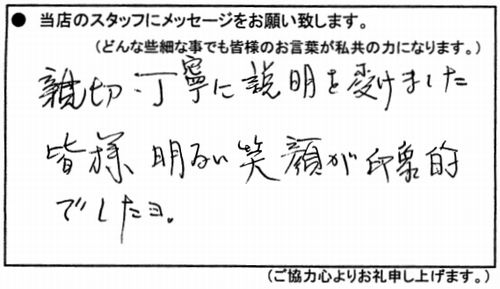 ● 当店のスタッフにメッセージをお願い致します。
（どんな些細な事でも皆様のお言葉が私共の力になります。）
親切・丁寧に説明を受けました
皆様、明るい笑顔が印象的
でしたヨ。
（ご協力心よりお礼申し上げます。）